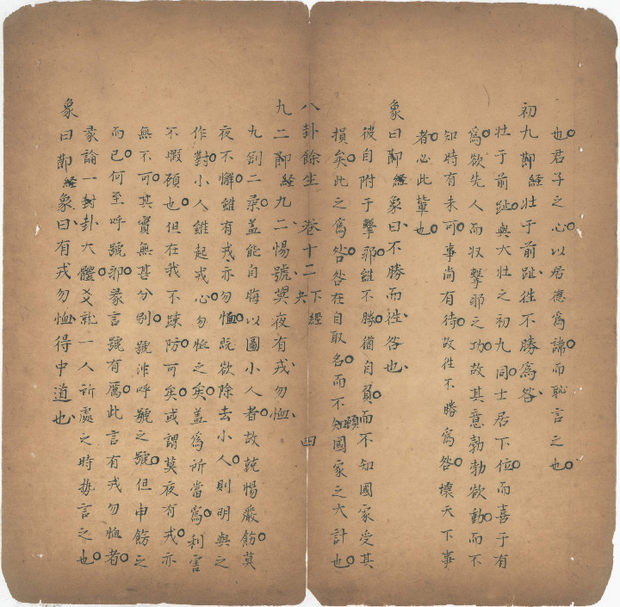 也君子之心以居德為諦而恥言之也
初九鄭經壯于前趾徃不勝為咎
壯于前趾與大壯之初九同士居下位而喜于有
為欲先人而収擊邪之功故其意勃勃欲動而不
知時有未可事尚有待故徃不勝為咎壞天下事
者必此輩也
象曰鄭經象曰不勝而徃咎也
彼自附于擊邪雖不勝猶自負而不知國家受其
損矣此之為咎咎在自取名而不顧國家之大計也
八卦餘生 卷十二 下經 夬 四
九二鄭經九二惕號莫夜有戎勿恤
九剛二承蓋能自晦以圖小人者故號惕嚴飭莫
夜不懈雖有戎亦勿恤既欲除去小人則明與之
作對小人雖起戎心勿恤之矣蓋為所當為利害
不暇顧也但在我不踈防可矣或謂莫夜有戎亦
無不可其實無甚分別號沭呼號之號但申飭之
而已何至呼號郭彖言號有厲此言有戎勿恤者
彖論一封卦大體爻就一人所處之時勢言之也
象曰鄭經象曰有戎勿恤得中道也